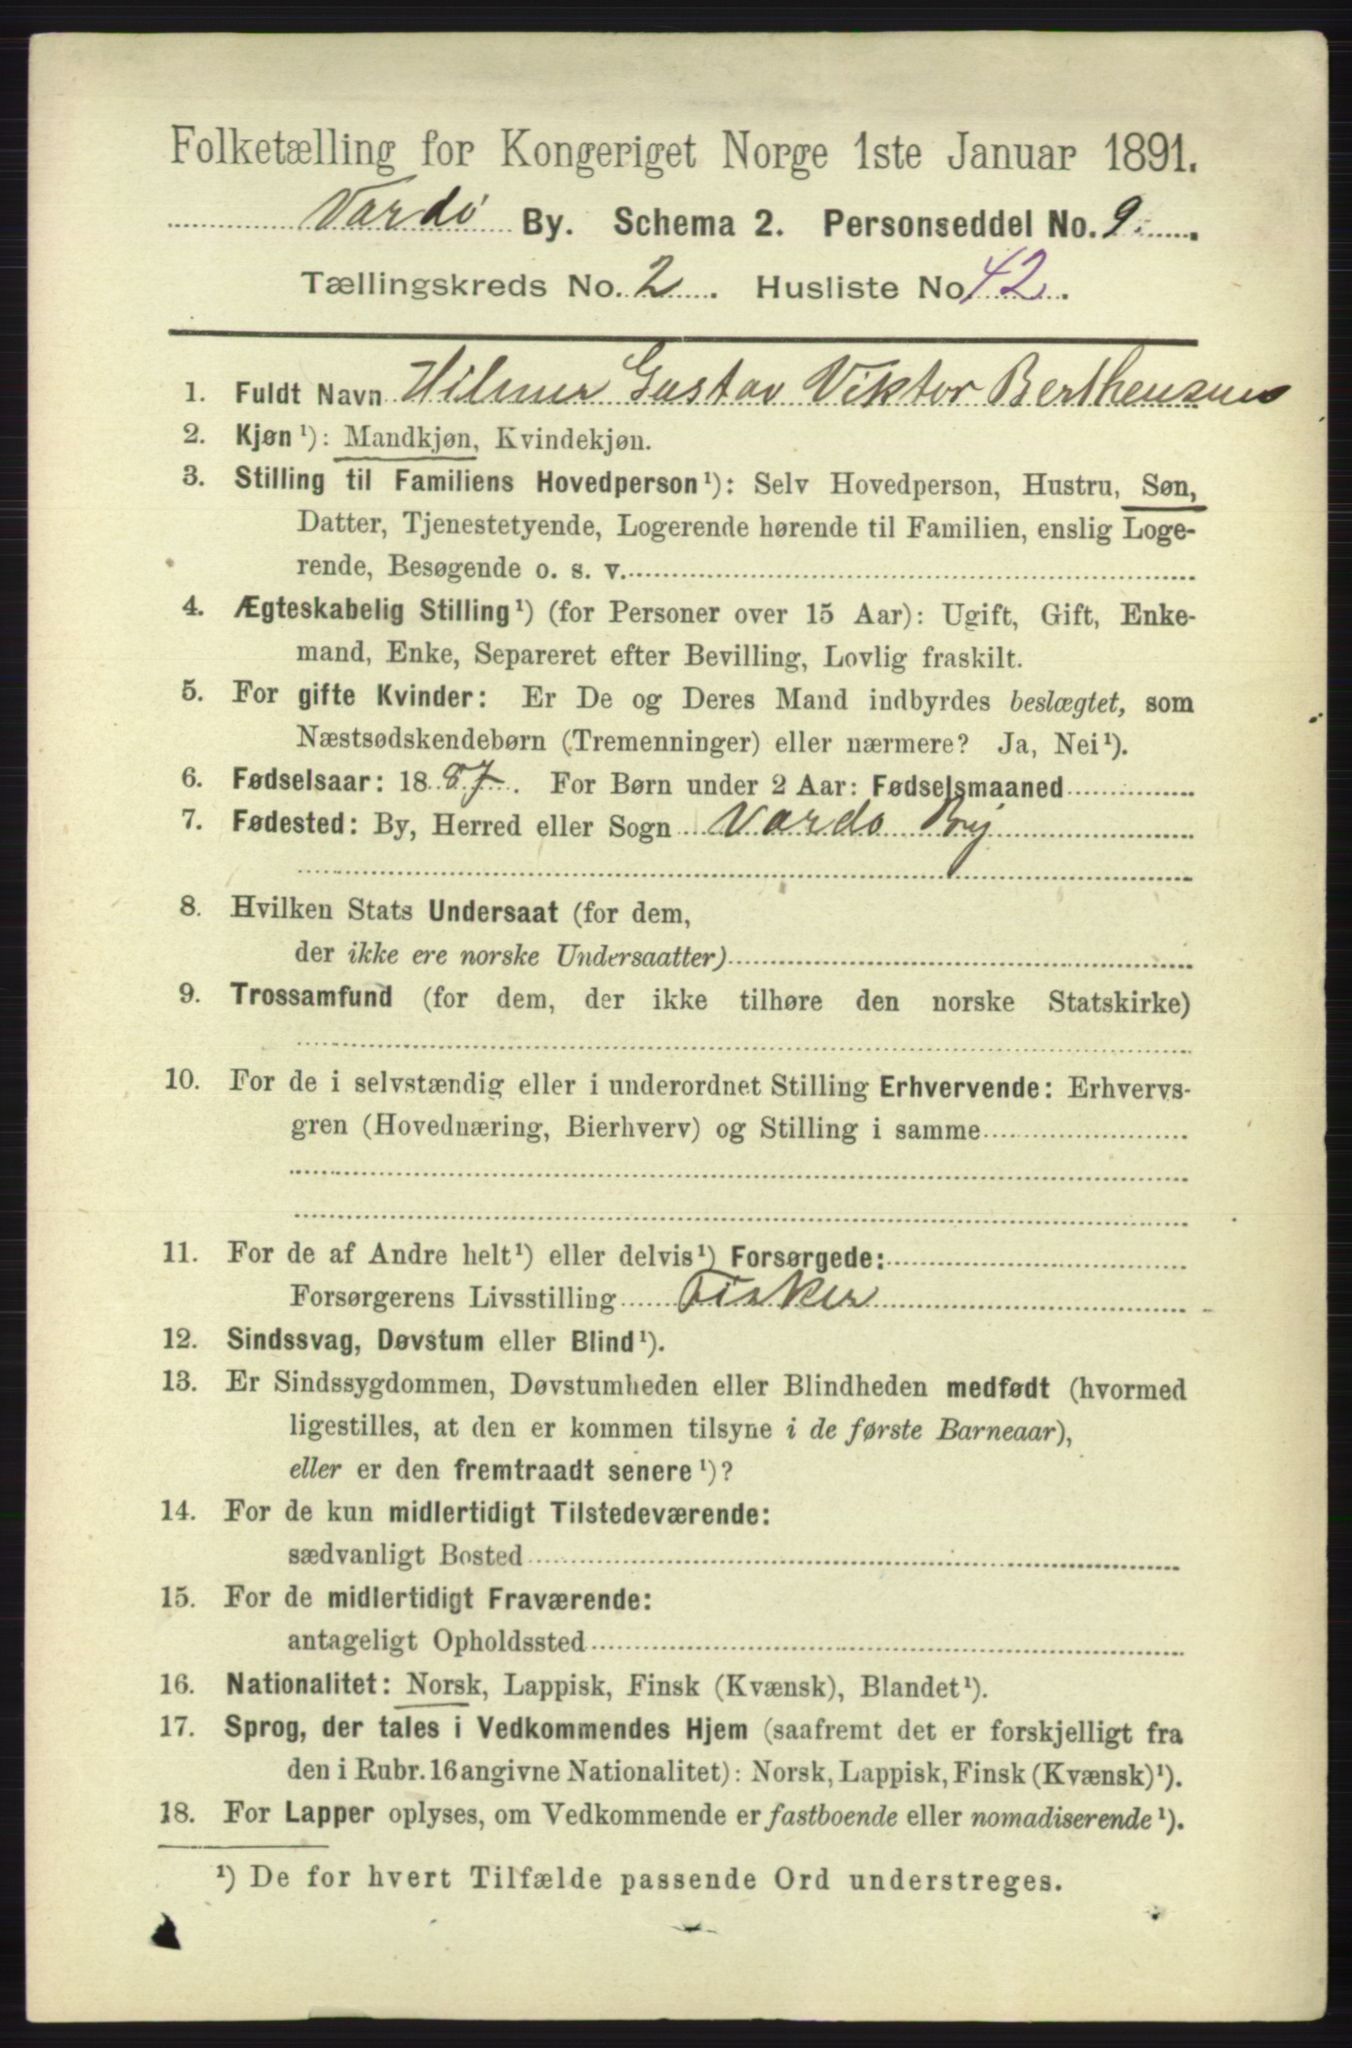 Folketælling for Kongeriget Norge 1ste Januar 1891.
Vardø By. Schema 2. Personseddel No. 9.
Tællingskreds No. 2. Husliste No 42.
1. Fuldt Navn Hilmer Gustav Viktor Berthensen
2. Kjøn ¹): Mandkjøn, Kvindekjøn.
3. Stilling til Familiens Hovedperson ¹): Selv Hovedperson, Hustru, Søn,
Datter, Tjenestetyende, Logerende hørende til Familien, enslig Loge-
rende, Besøgende o. s. v.
4. Ægteskabelig Stilling ¹) (for Personer over 15 Aar): Ugift, Gift, Enke-
mand, Enke, Separeret efter Bevilling, Lovlig fraskilt.
5. For gifte Kvinder: Er De og Deres Mand indbyrdes beslægtet, som
Næstsødskendebørn (Tremenninger) eller nærmere? Ja, Nei ¹).
6. Fødselsaar: 1887. For Børn under 2 Aar: Fødselsmaaned
7. Fødested: By, Herred eller Sogn Vardo By
8. Hvilken Stats Undersaat (for dem,
der ikke ere norske Undersaatter)
9. Trossamfund (for dem, der ikke tilhøre den norske Statskirke)
10. For de i selvstændig eller i underordnet Stilling Erhvervende: Erhvervs-
gren (Hovednæring, Bierhverv) og Stilling i samme
11. For de af Andre helt ¹) eller delvis ¹) Forsørgede:
Forsørgerens Livsstilling Fisker
12. Sindssvag, Døvstum eller Blind ¹).
13. Er Sindssygdommen, Døvstumheden eller Blindheden medfødt (hvormed
ligestilles, at den er kommen tilsyne i de første Barneaar),
eller er den fremtraadt senere ¹)?
14. For de kun midlertidigt Tilstedeværende:
sædvanligt Bosted
15. For de midlertidigt Fraværende:
antageligt Opholdssted
16. Nationalitet: Norsk, Lappisk, Finsk (Kvænsk), Blandet ¹).
17. Sprog, der tales i Vedkommendes Hjem (saafremt det er forskjelligt fra
den i Rubr. 16 angivne Nationalitet): Norsk, Lappisk, Finsk (Kvænsk) ¹).
18. For Lapper oplyses, om Vedkommende er fastboende eller nomadiserende ¹).
¹) De for hvert Tilfælde passende Ord understreges.